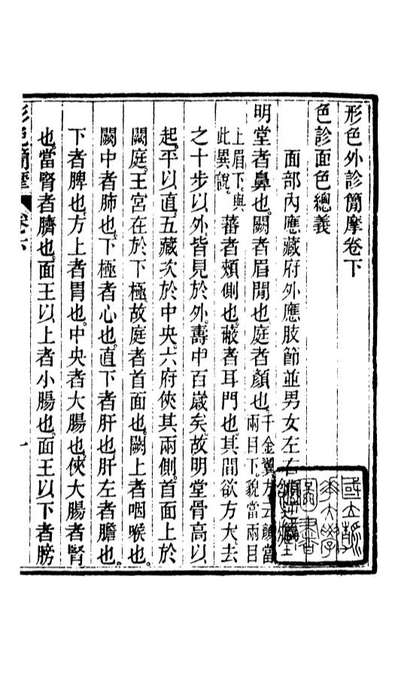 形色外診簡摩卷下
色診面色總義
面部內應藏府外應肢節並男女左右
明堂者鼻也。闕者眉間也。庭者顏也。千金翼方云顏當兩目下貌當兩目
上眉下與此異說。蕃者頰側也蔽者耳門也其間欲方大去
之十步以外皆見於外壽中百歲矣故明堂骨高以
起。平以直五藏次於中央六府俠其兩側。首面上於
闕庭。王宮在於下極故庭者首面也。闕上者咽喉也。
闕中者肺也。下極者心也。直下者肝也肝左者膽也。
下者脾也。方上者胃也。中央者大腸也。俠大腸者腎
也。當腎者臍也。面王以上者小腸也面王以下者膀
形色簡摩 卷下 一